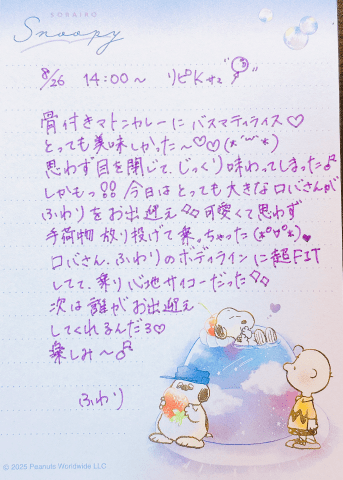 SORAIRO
Snoopy
8/26 14:00～ リピKさま
骨付きマトンカレーに バスマティライス♡
とっても美味しかった～♡♡(*´˘`*)
思わず目を閉じて、じっくり味わってしまった♪
しかもっ!! 今日はとっても大きなロバさんが
ふわりをお出迎え 可愛くて思わず
手荷物 放り投げて 乗っちゃった(*°▽°*)♥
ロバさん、ふわりのボディラインに超FIT
してて、乗り心地サイコーだった
次は誰がお出迎え
してくれるんだろ♡
楽しみ～♪
ふわり
© 2025 Peanuts Worldwide LLC